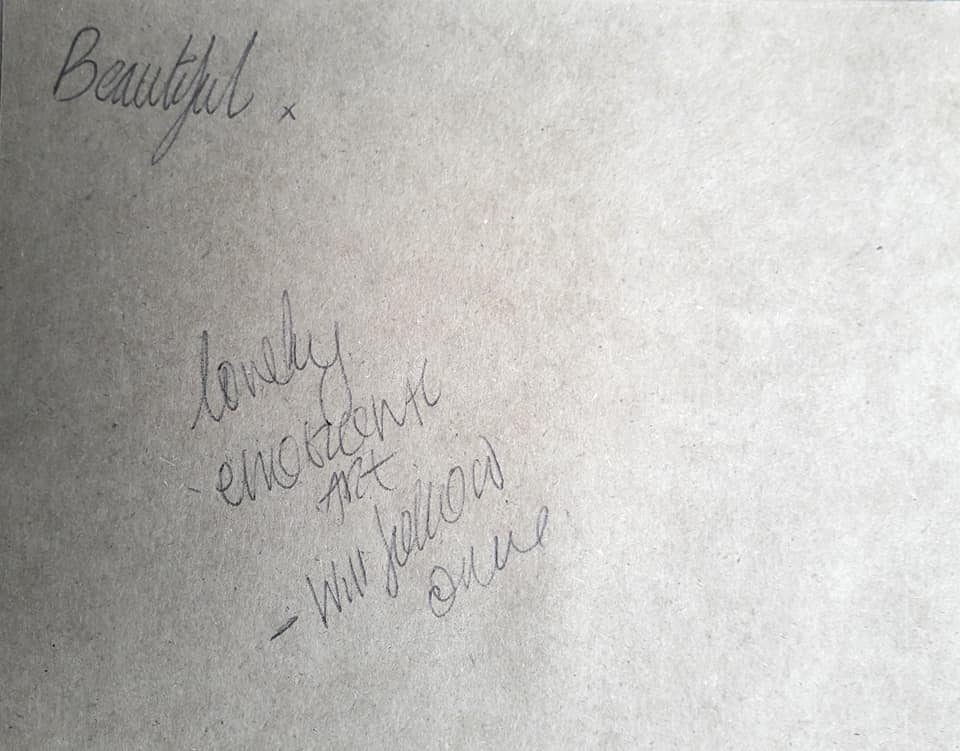 Beautiful x
lovely
- emotional
ART
- Will follow
online